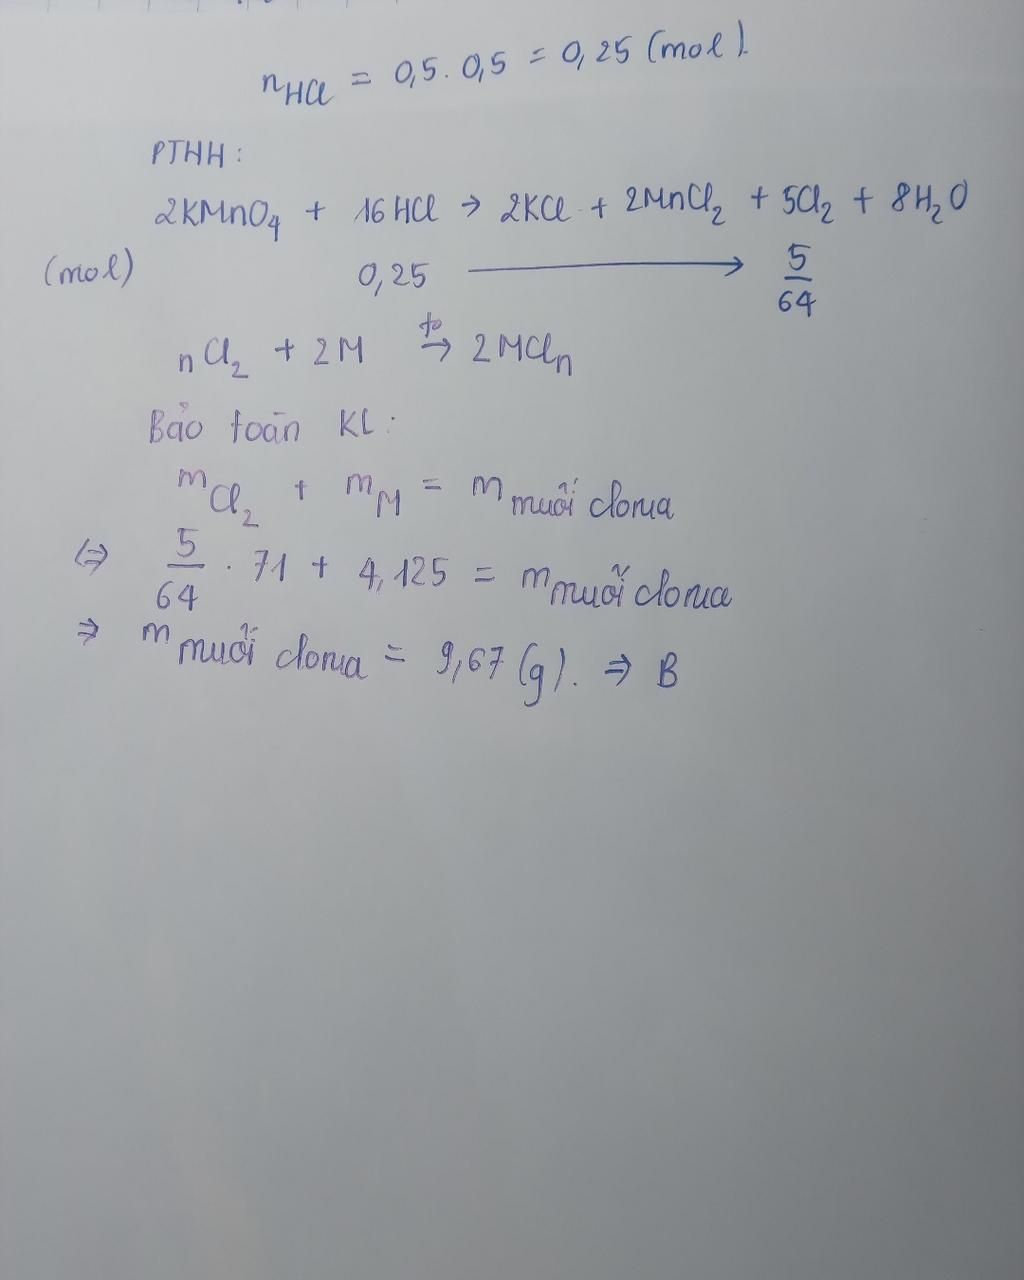 nHCl = 0,5. 0,5 = 0,25 (mol).
PTHH:
2KMnO4 + 16HCl → 2KCl + 2MnCl2 + 5Cl2 + 8H2O
(mol) 0,25 → 5/64
nCl2 + 2M t° → 2MCln
Bảo toàn KL:
mCl2 + mM = m muối clorua
⇔ 5/64 . 71 + 4,125 = m muối clorua
⇒ m muối clorua = 9,67 (g). ⇒ B